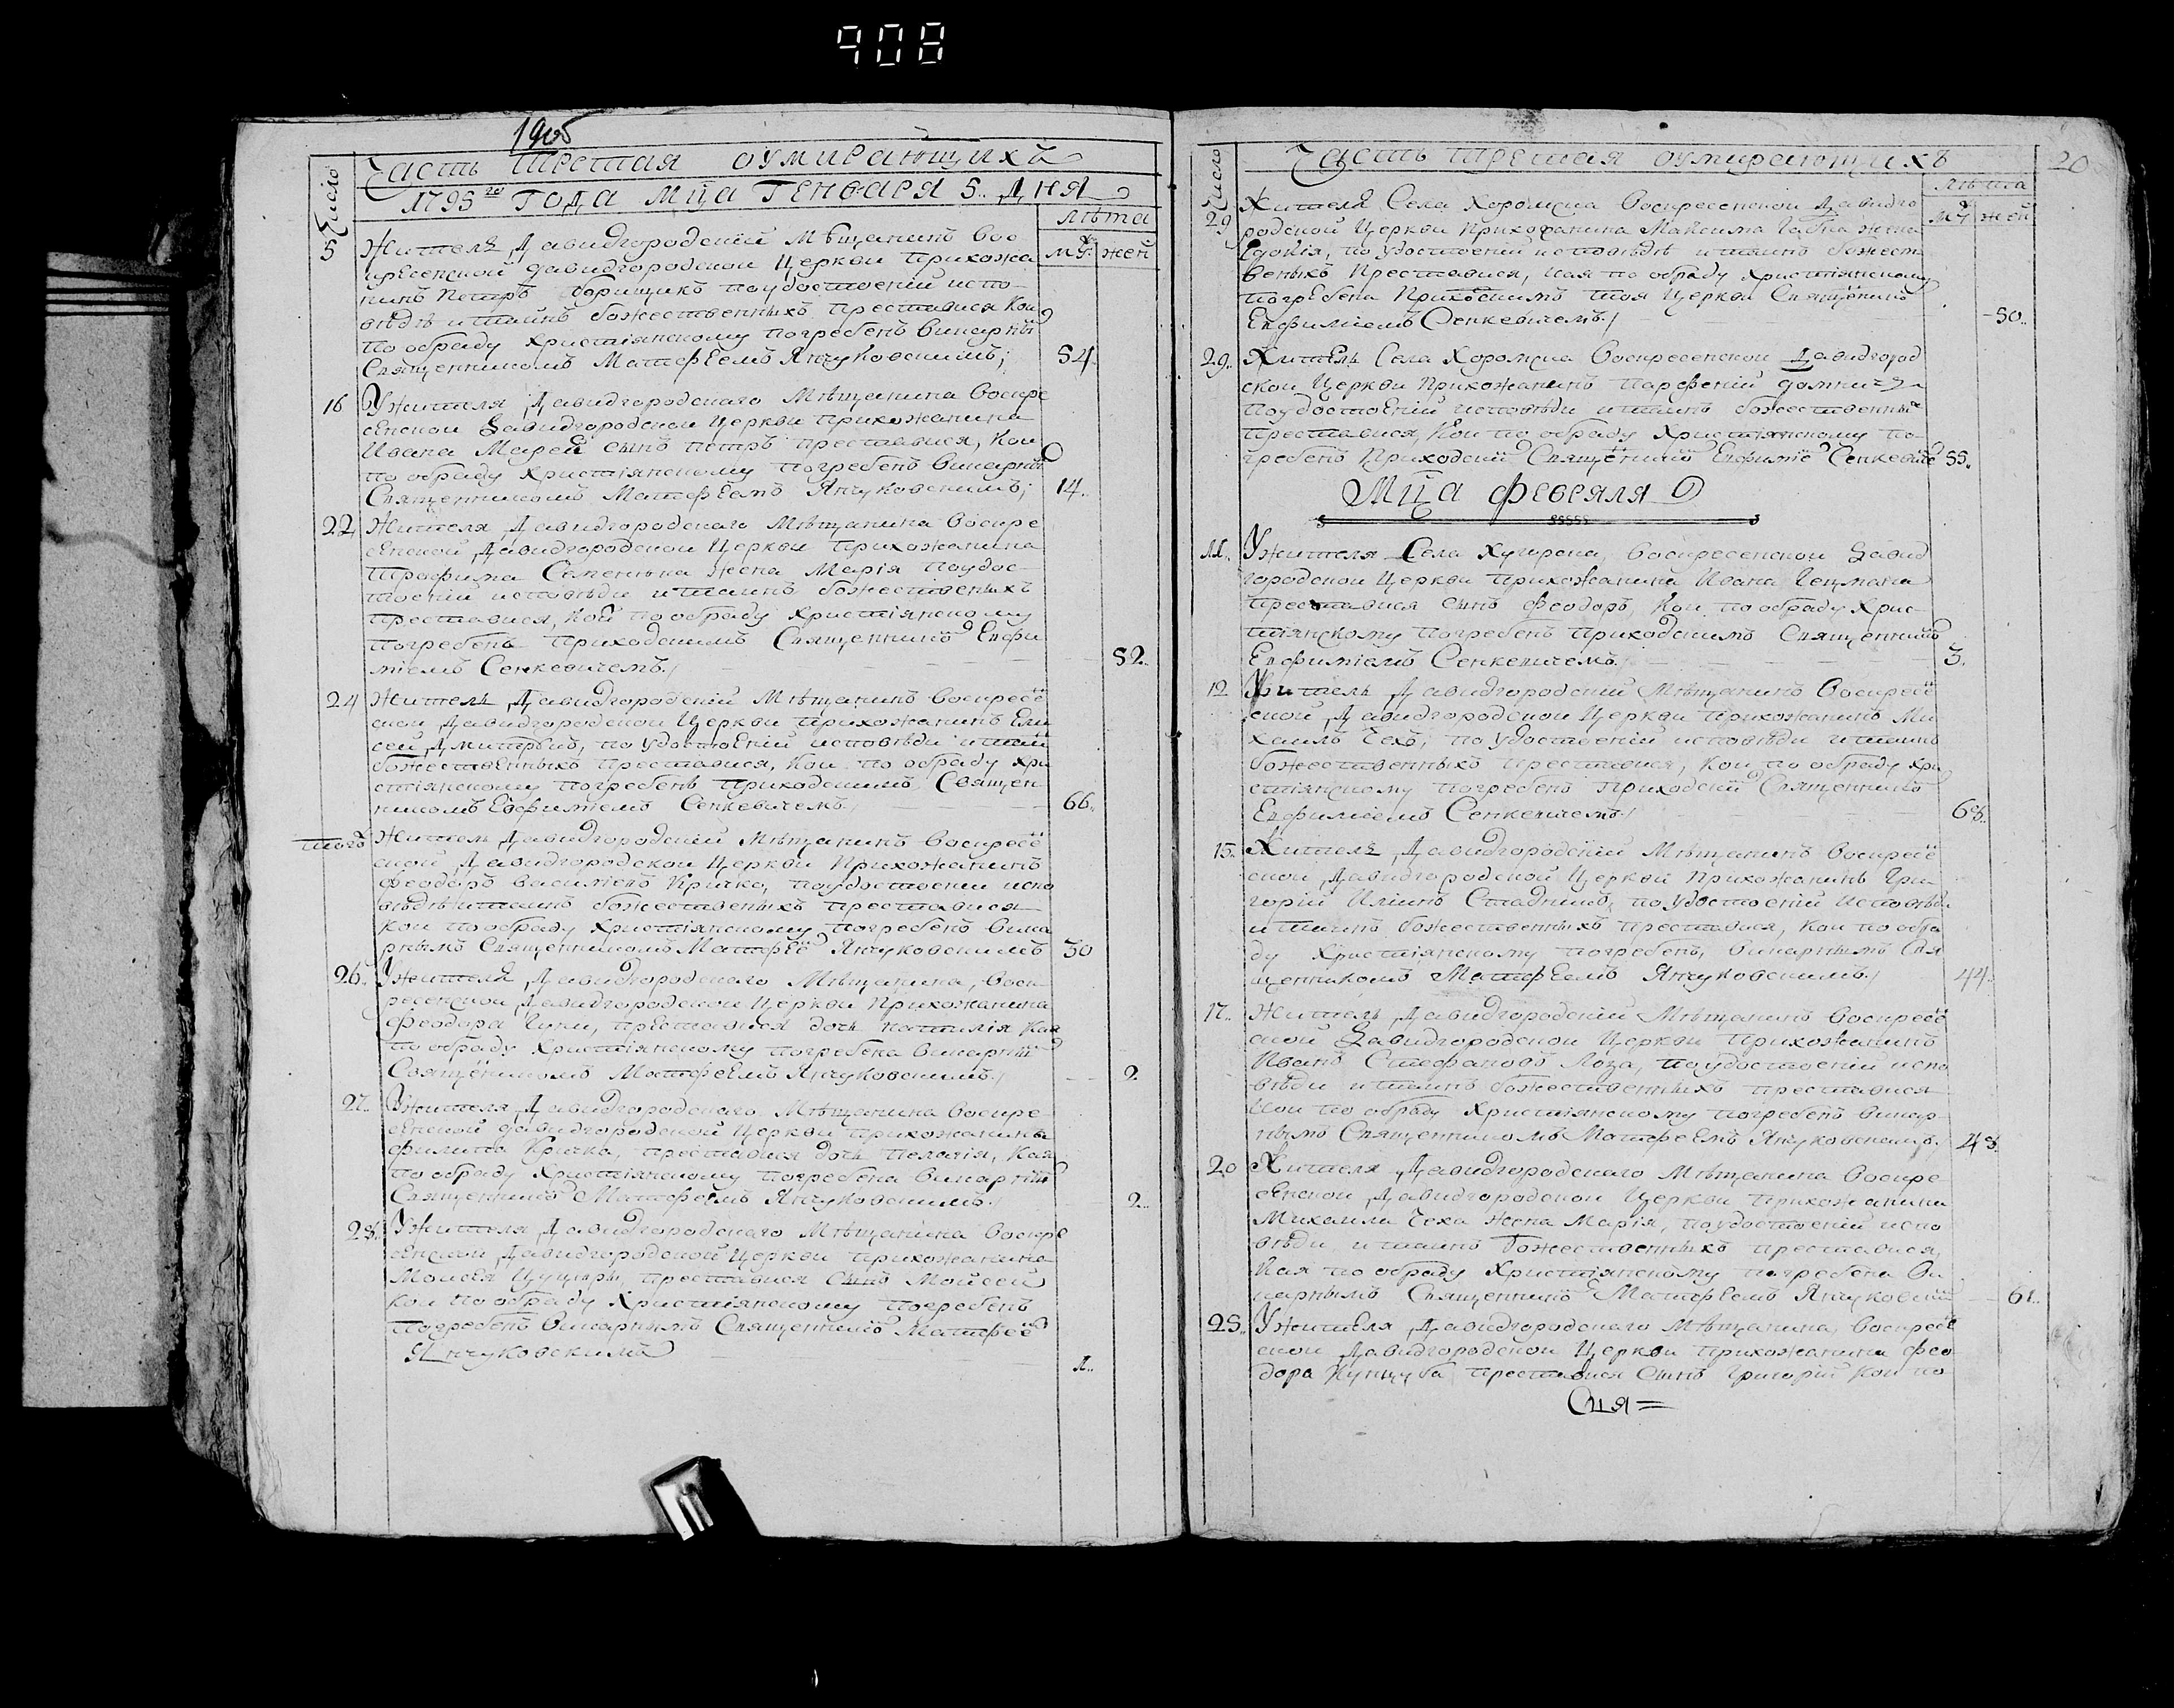 908
1905
Число
Часть третая оумирающихъ
1795го года мца Генваря 5.. дня
лѣта
муж жен
5
Житель Давидгородскій Мѣщанинъ Вос
кресенской давидгородской Церкви прихожа
нинъ Петръ поудостоеніи испо-
вѣди и таинъ божественныхъ преставися Кои
по обряду христіянскому погребенъ викарны
Священникомъ Матфеемъ Янчуковскимъ;
54.
16
Ужителя Давидгородскаго Мѣщанина Воскре
сенской Давидгородской Церкви прихожанина
Ивана сынъ петръ преставися, Кои
по обряду христіянскому погребенъ викарны
Священникомъ Матфеемъ Янчуковскимъ;
14..
22
Жителя Давидгородскаго Мѣщанина Воскре
сенской Давидгородской Церкви прихожанина
Трофима жена Марія поудос-
тоеніи исповѣди и таинъ божественыхъ
преставися, Кои по обряду христіянскому
погребенъ приходскимъ Священникъ Евфи
міемъ Сенкевичемъ./
52..
24
Житель Давидгородскій Мѣщанинъ Воскресе
ской Давидгородской Церкви прихожанинъ Ели
сей Дмитрыевъ, по удостоеніи исповѣди и таи
божественныхъ преставися, Кои по обряду хри
стіянскому погребенъ приходскимъ Священ
никомъ Евфиміемъ Сенкевичемъ./
66..
тогѡ
Житель Давидгородскій Мѣщанинъ Воскресе
ской Давидгородской Церкви Прихожанинъ
Феодоръ Кричко, поудостоеніи испо
вѣди и таинъ божественыхъ преставися
Кои по обряду Христіянскому погребенъ вика
рнымъ Священникомъ Матфее Янчуковскимъ
30
26.
Ужителя Давидгородскаго Мѣщанина, Воск
ресенской Давидгородской Церкви Прихожанина
Феодора преставися дочь Каа
по обряду Христіянскому погребена викарны
Священикомъ Матфеемъ Янчуковскимъ./
2
27..
Ужителя Давидгородскаго Мѣщанина Воскре
сенской давидгородской Церкви прихожанина
филипа Кричка, преставися дочь Пелагія, Кая
по обряду Христіянскому погребена викарны
Священникъ Матфеемъ Янчуковскимъ./
2..
28.
Ужителя Давидгородскаго Мѣщанина Воскре
сенской Давидгородской Церкви прихожанина
Моисея преставися Сынъ Моисей
Кои по обряду Христіянскому погребенъ
погребенъ викарнымъ Священнико Матфее
Янчуковскимъ
1..
Число
Часть третая оумирающихъ
20
лѣта
муж жен
29
Жителя Села Хоромска Воскресенской Давидго
родской Церкви прихожанина Максима жена
Евдокія, по удостоеніи исповѣди и таинъ божест
веныхъ Преставися, Кая по обряду христіянскому
погребена Приходскимъ тоя Церкви Священикъ
Евфиміемъ Сенкевичемъ./
50..
29..
Житель Села Хоромска Воскресенской Давидгород
ской Церкви Прихожанинъ Парфеній
поудостоеніи исповѣди и таинъ божественны
преставися, Кои по обряду Христіянскому по-
гребенъ Приходски Священико Евфиміе Сенкевиче
55..
Мца Февраля
11..
Ужителя Села Хугорска, Воскресенской Давид
городской Церкви прихожанина Ивана
преставися сынъ Феодоръ, Кои по обряду Хрис-
тіянскому погребенъ приходскимъ Священнико
Евфиміемъ Сенкевичемъ.
3.
12
Житель Давидгородскій Мѣщанинъ Воскресе
ской Давидгородской Церкви прихожанинъ Ми
хаилъ Чехъ, по удостоеніи исповѣди и таинъ
божественныхъ преставися, Кои по обряду хри
стіянскому погребенъ приходски Священнико
Евфиміемъ Сенкевичемъ./
68..
15..
Житель Давидгородскій Мѣщанинъ Воскресе
ской Давидгородской Церкви Прихожанинъ Гри-
горій Иліинъ Стадникъ, по удостоеніи Исповѣди
и таинъ божественныхъ преставися, Кои по обря
ду Христіянскому погребенъ, викарнымъ Свя
щенникомъ Матфеемъ Янчуковскимъ./
44.
17..
Житель Давидгородскій Мѣщанинъ Воскресе
ской Давидгородской Церкви прихожанинъ
Иванъ Стефановъ Лоза, поудостоеніи испо
вѣди и таинъ божественныхъ преставися
Кои по обряду Христіянскому погребенъ викар-
нымъ Священникомъ Матфеемъ Янчуковскимъ./
48.
20
Жителя Давидгородскаго Мѣщанина Воскре
сенской Давидгородской Церкви прихожанина
Михаила Чеха жена Марія, поудостоеніи испо
вѣди и таинъ божественныхъ преставися,
Кая по обряду Христіянскому погребена Ви
карнымъ Священнико Матфеемъ Янчуковски
61..
25..
Ужителя Давидгородскаго Мѣщанина, Воскресе
ской Давидгородской Церкви прихожанина Фео-
дора преставися Сынъ Григорій Кои по